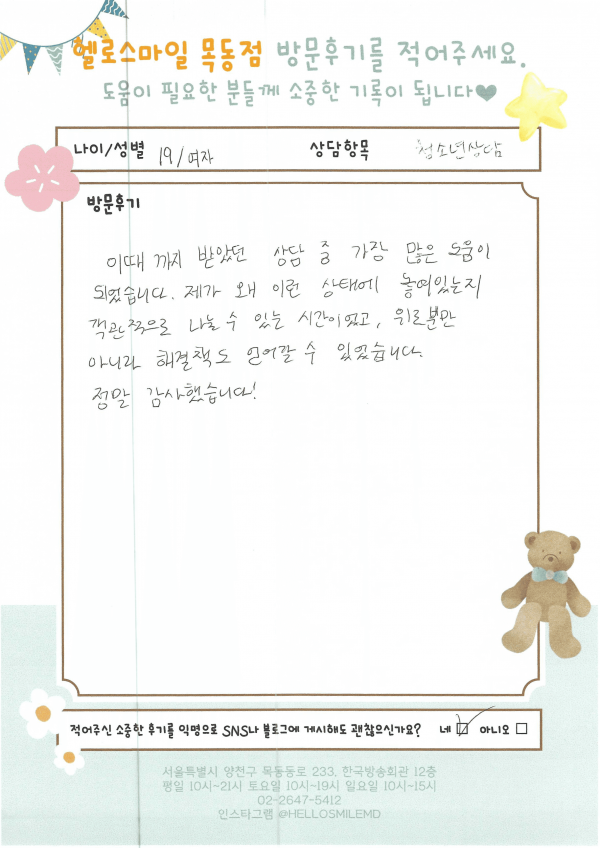 헬로스마일 목동점 방문후기를 적어주세요.
도움이 필요한 분들께 소중한 기록이 됩니다♥
나이/성별 19/여자 상담항목 청소년상담
방문후기
이때 까지 받았던 상담 중 가장 많은 도움이
되었습니다. 제가 왜 이런 상태에 놓여있는지
객관적으로 나눌 수 있는 시간이었고, 위로뿐만
아니라 해결책도 얻어갈 수 있었습니다.
정말 감사했습니다!
적어주신 소중한 후기를 익명으로 SNS나 블로그에 게시해도 괜찮으신가요? 네 ☑ 아니오 ☐
서울특별시 양천구 목동동로 233, 한국방송회관 12층
평일 10시~21시 토요일 10시~19시 일요일 10시~15시
02-2647-5412
인스타그램 @HELLOSMILEMD